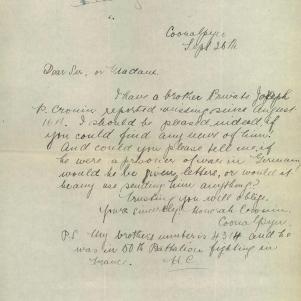 Coonalpyn
Sept 26th
Dear Sir, or Madame.
I have a brother Private Joseph
P. Cronin reported missing since August
16th. I should be pleased indeed, if
you could find any news of him.
And could you please tell me, if
he were a prisoner of war in Germany
would he be given letters, or would it
be any use sending him anything?
Trusting you will oblige.
Yours sincerely Honorah Cronin
Coonalpyn.
P.S. My brothers number is 4314 and he
was in 50th Battalion fighting in
France. H.C.